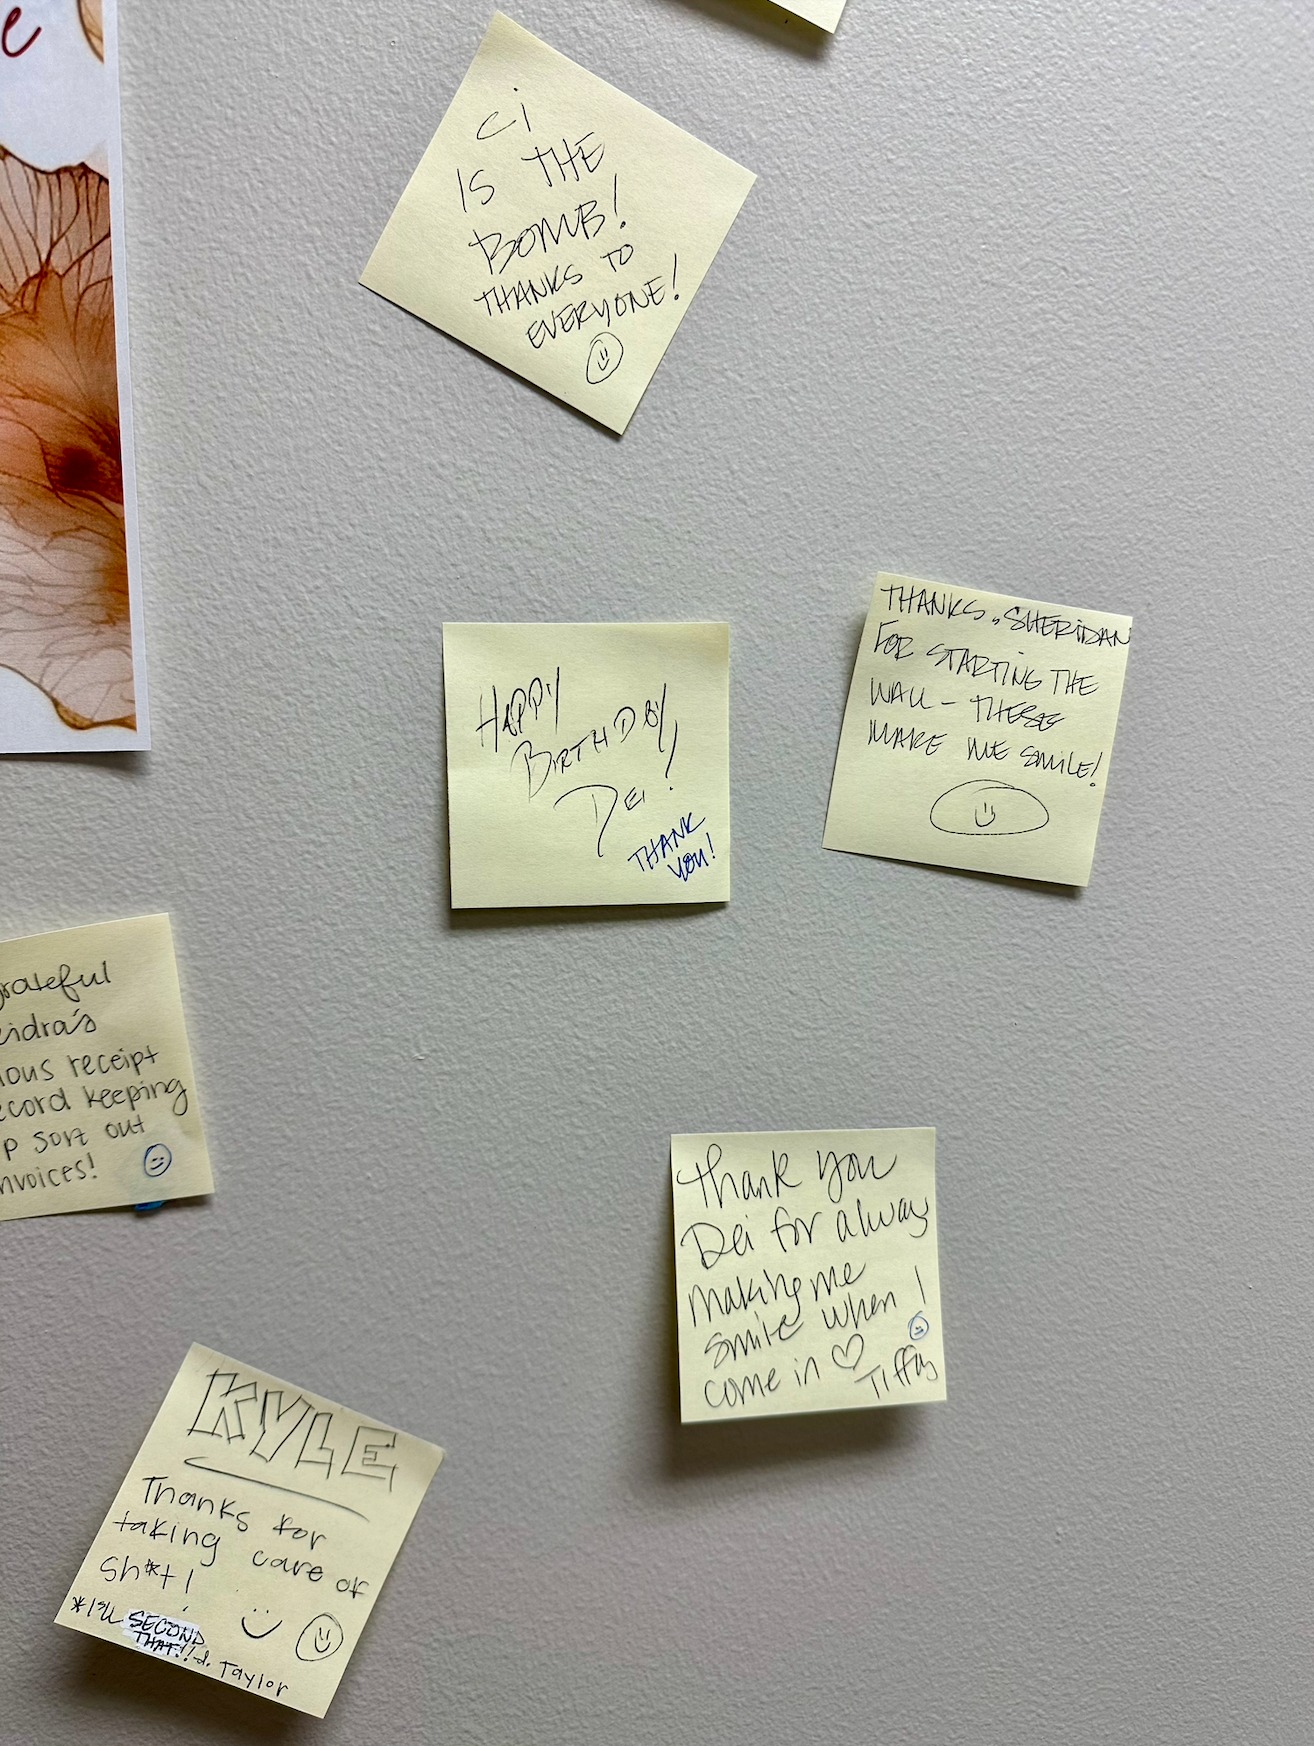 e
Ci
IS THE
BOMB!
THANKS TO
EVERYONE!
HAPPY
BIRTHDAY,
DEI!
THANK
YOU!
THANKS, SHERIDAN
FOR STARTING THE
WALL - THESE
MAKE ME SMILE!
grateful
eidra's
ious receipt
ecord keeping
p sort out
nvoices!
Thank you
Dei for always
making me
smile when I
come in ♡
Tiffany
KYLE
Thanks for
taking care of
Sh*t!
*I'LL SECOND
THAT!!
Taylor